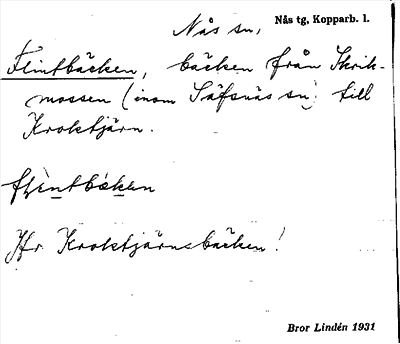 Nås sn, Nås tg, Kopparb. l.
Flintbäcken, bäcken från Skrik-
mossen (inom Säfsnäs sn) till
Kroktjärn.
Jfr Kroktjärnsbäcken!
Bror Lindén 1931